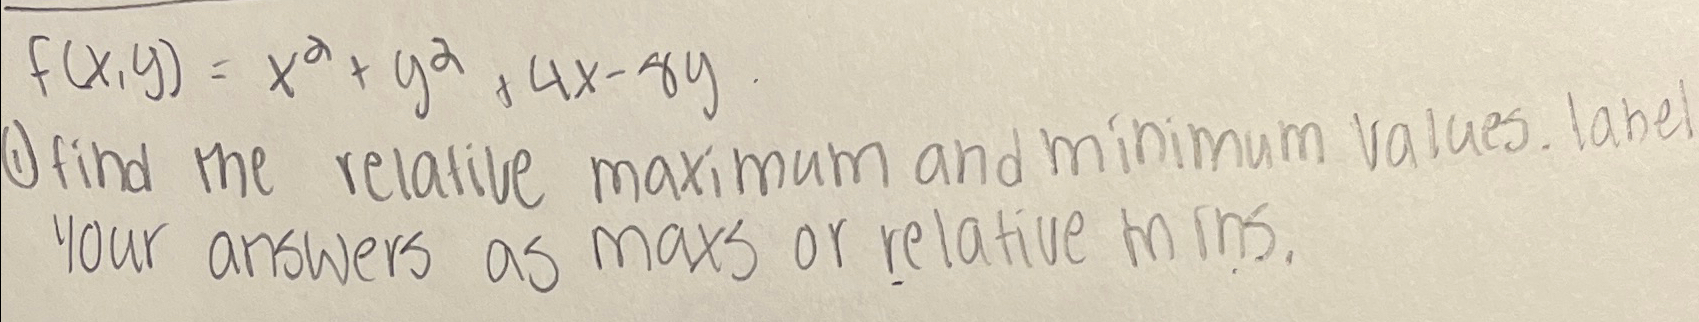 f(x,y) = x² + y² + 4x - 8y.
① find the relative maximum and minimum values. label
your answers as maxs or relative mins.